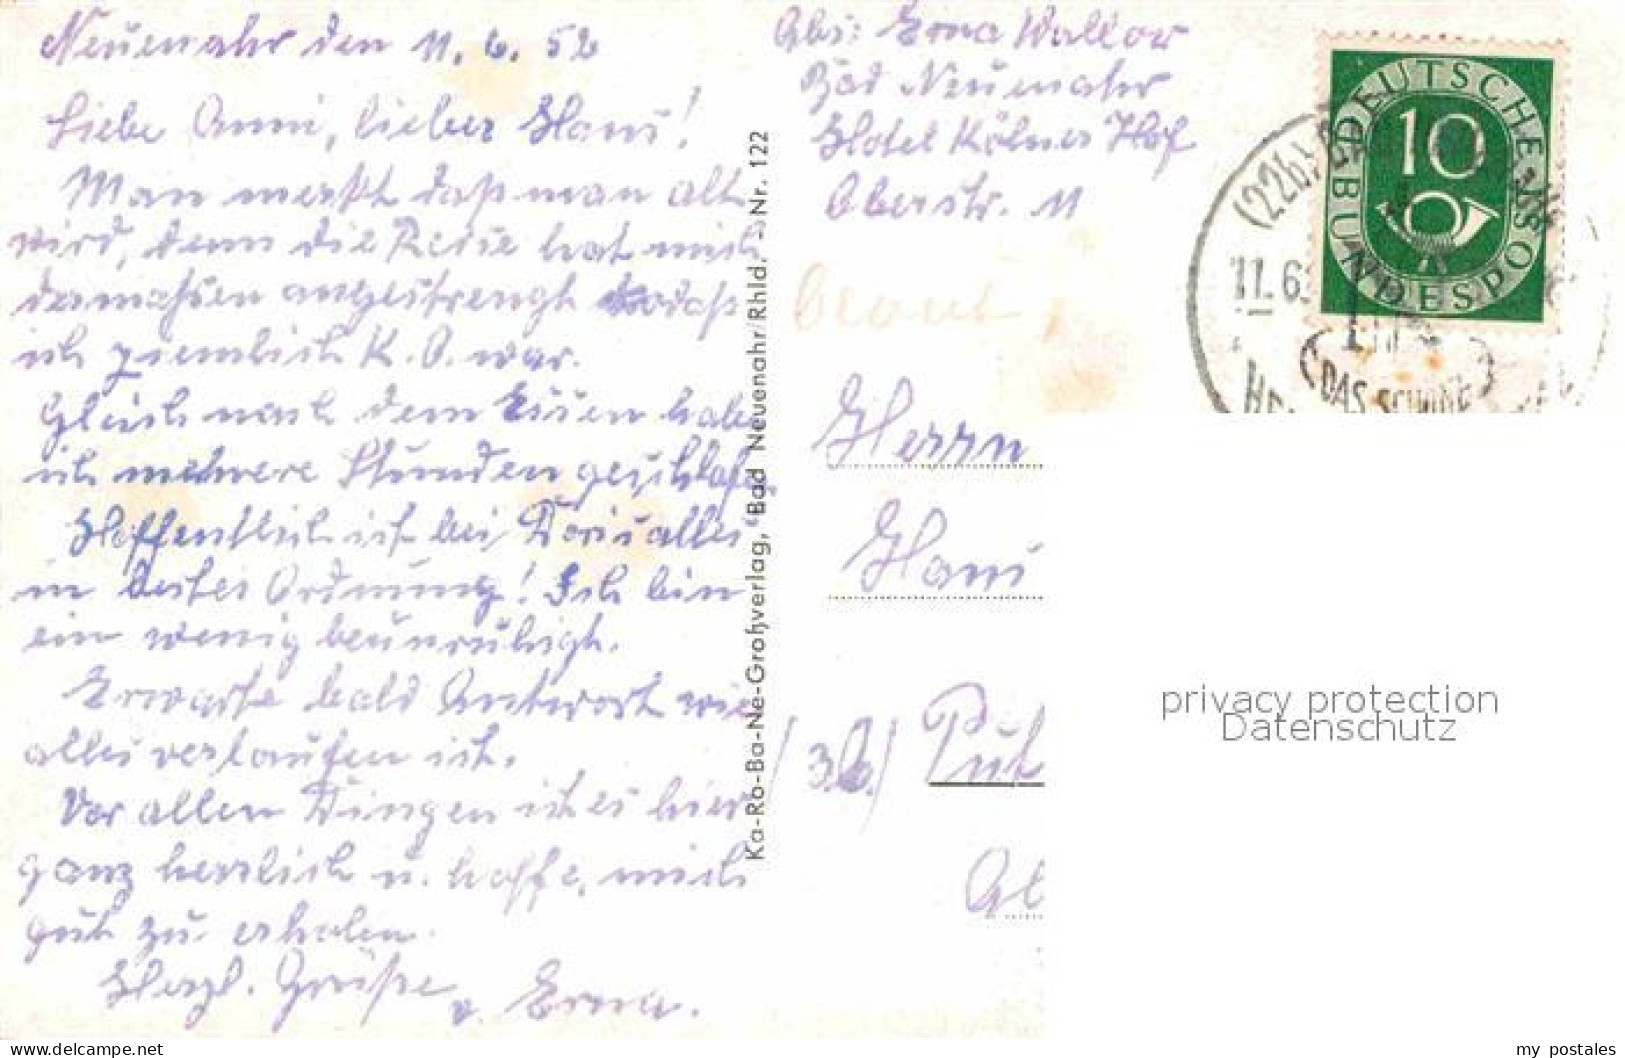 Neuenahr den 11.6.52
Liebe Anni, lieber Hans!
Man merkt daß man alt
wird, denn die Reise hat mich
dermaßen angestrengt sodaß
ich ziemlich K.O. war.
Gleich nach dem Essen habe
ich mehrere Stunden geschlafen.
Hoffentlich ist bei Doris alles
in bester Ordnung! Ich bin
ein wenig beunruhigt.
Erwarte bald Antwort wie
alles verlaufen ist.
Vor allen Dingen ist es hier
ganz herrlich u. hoffe, mich
gut zu erholen.
Herzl. Grüße
v. Erna.
Ka-Ro-Ba-Ne-Großverlag, Bad Neuenahr/Rhld. - Nr. 122
Abs: Erna
Bad Neuenahr
Hotel Kölner Hof
Oberstr. 11
DEUTSCHE BUNDESPOST
10
(22b)
11.6.
DAS
Herrn
Hans
privacy protection
Datenschutz
my postales